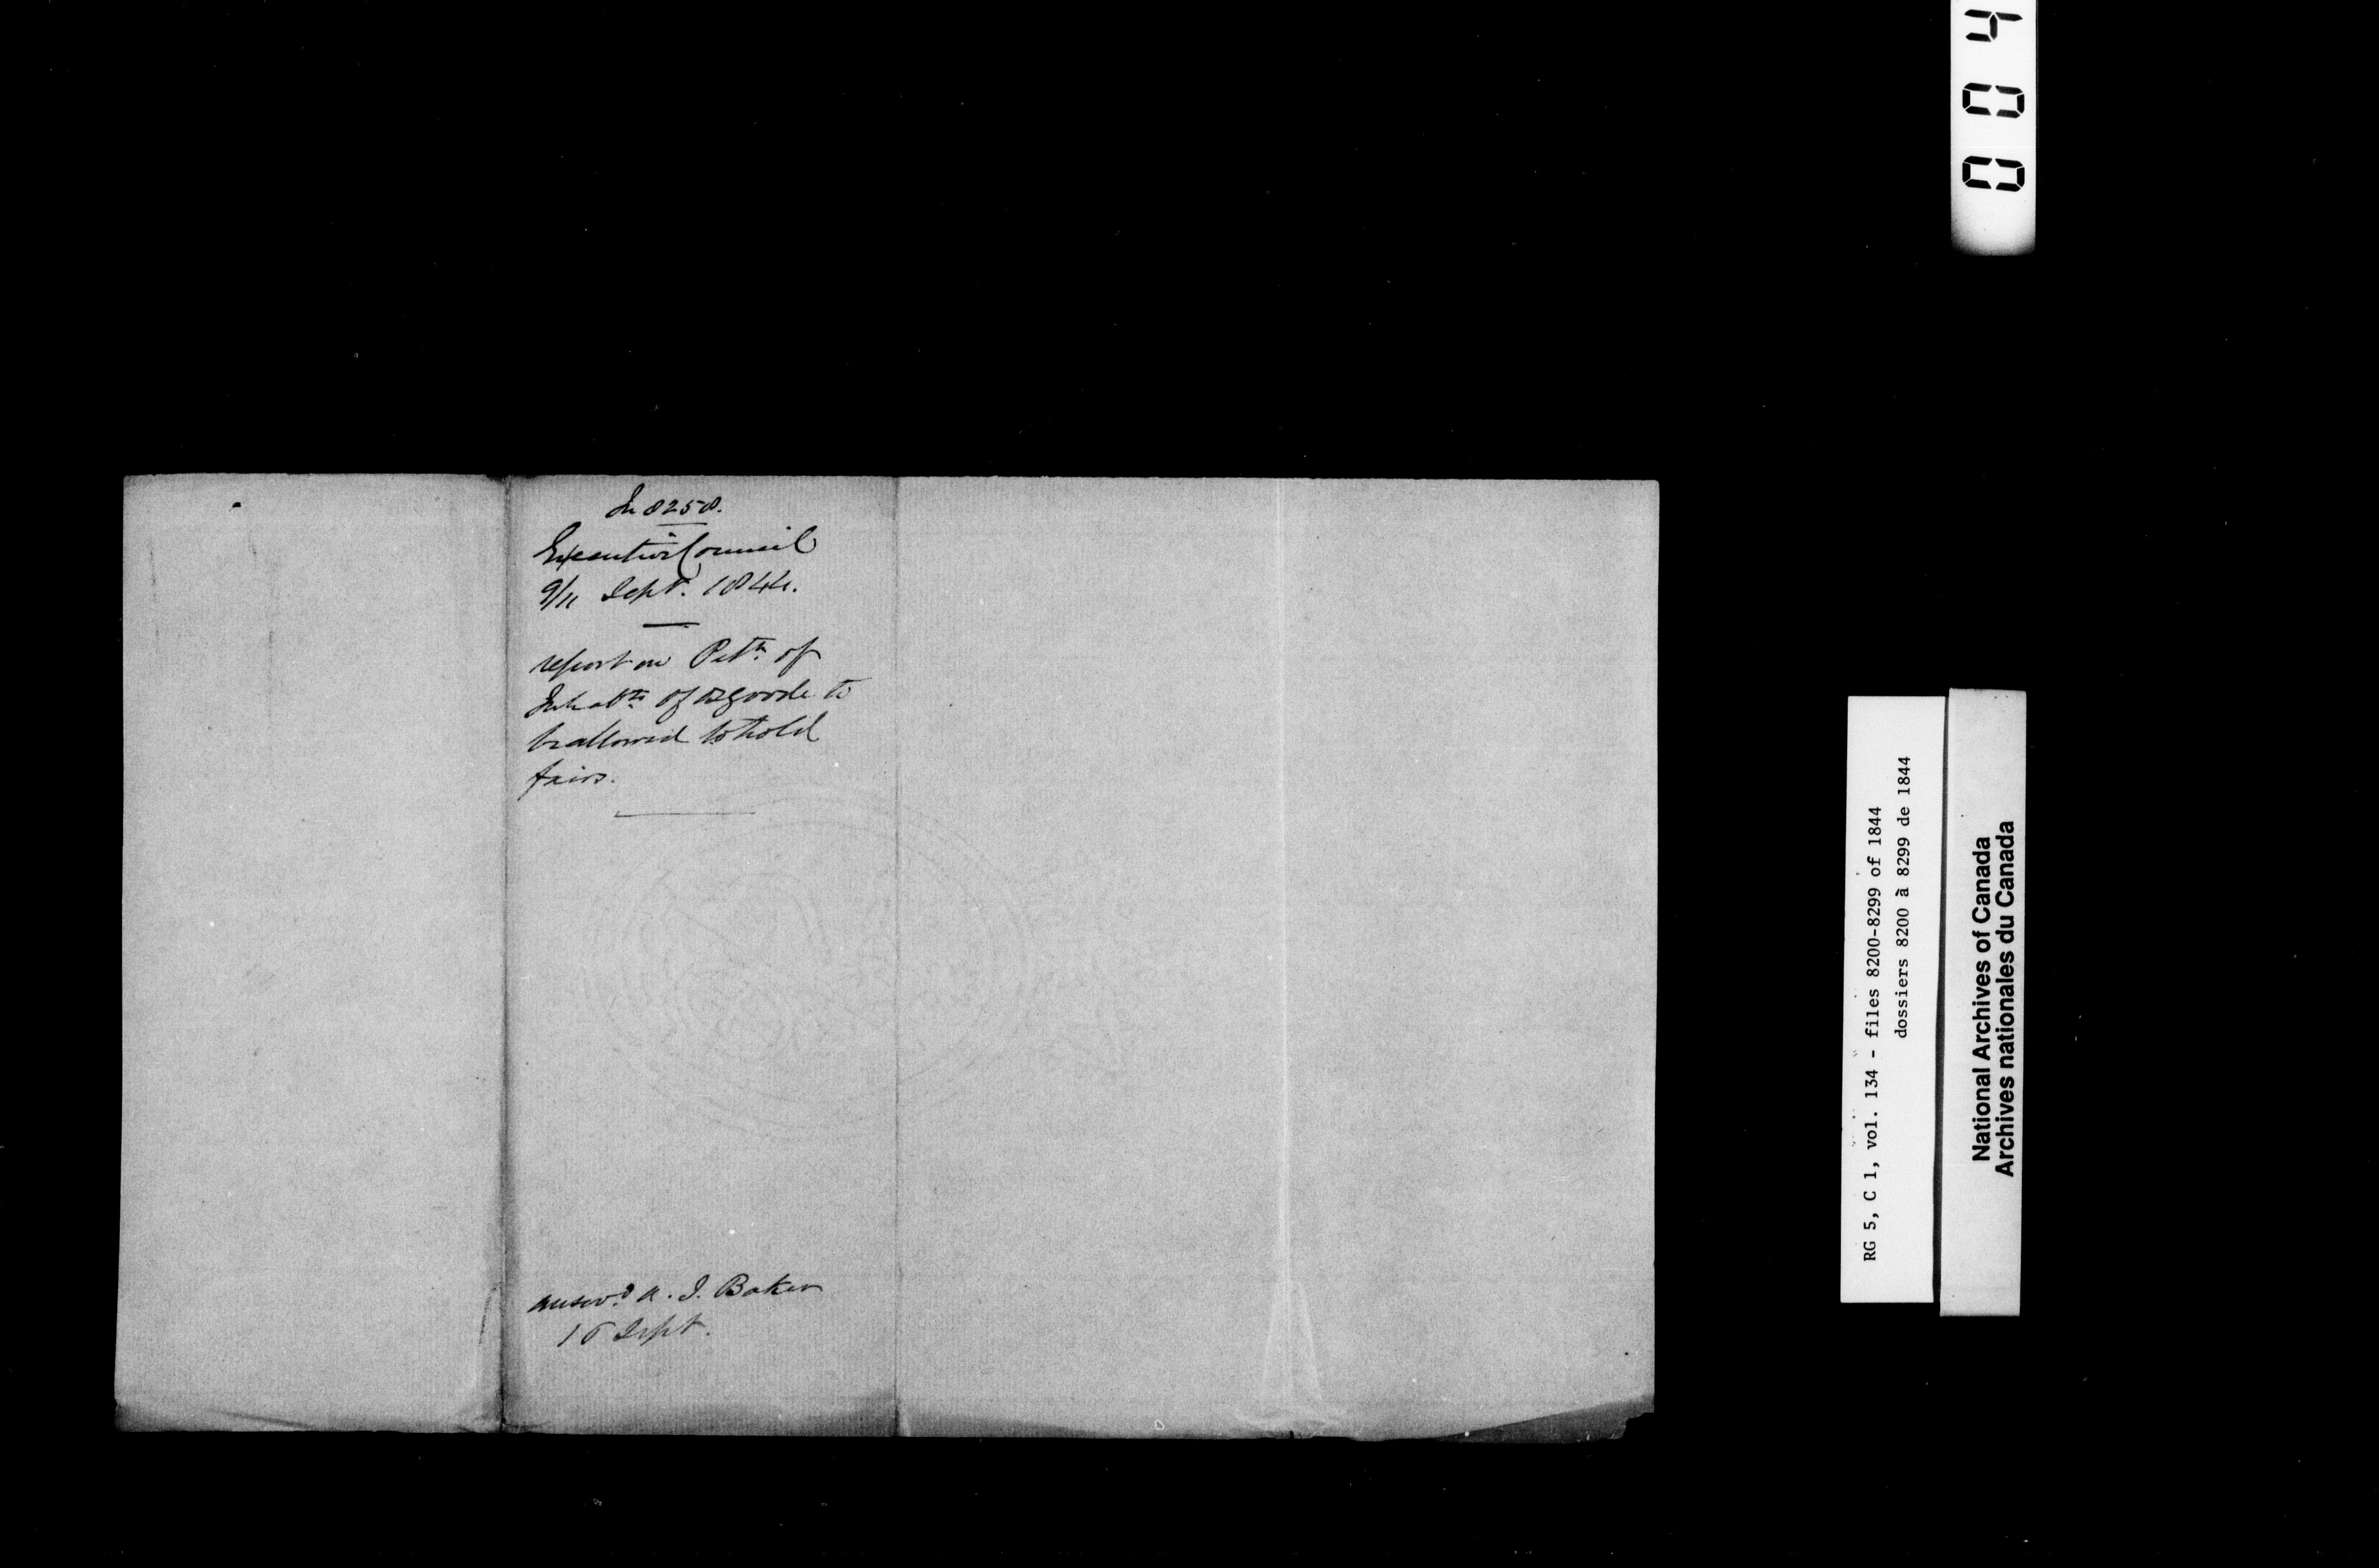 In 8258.
Executive Council
9/11 Sept. 1844.
report on Petn. of
Inhabts. of Osgoode to
be allowed to hold
fairs.
answd. A. J. Baker
16 Sept.
RG 5, C 1, vol. 134 - files 8200-8299 of 1844
dossiers 8200 à 8299 de 1844
National Archives of Canada
Archives nationales du Canada
004